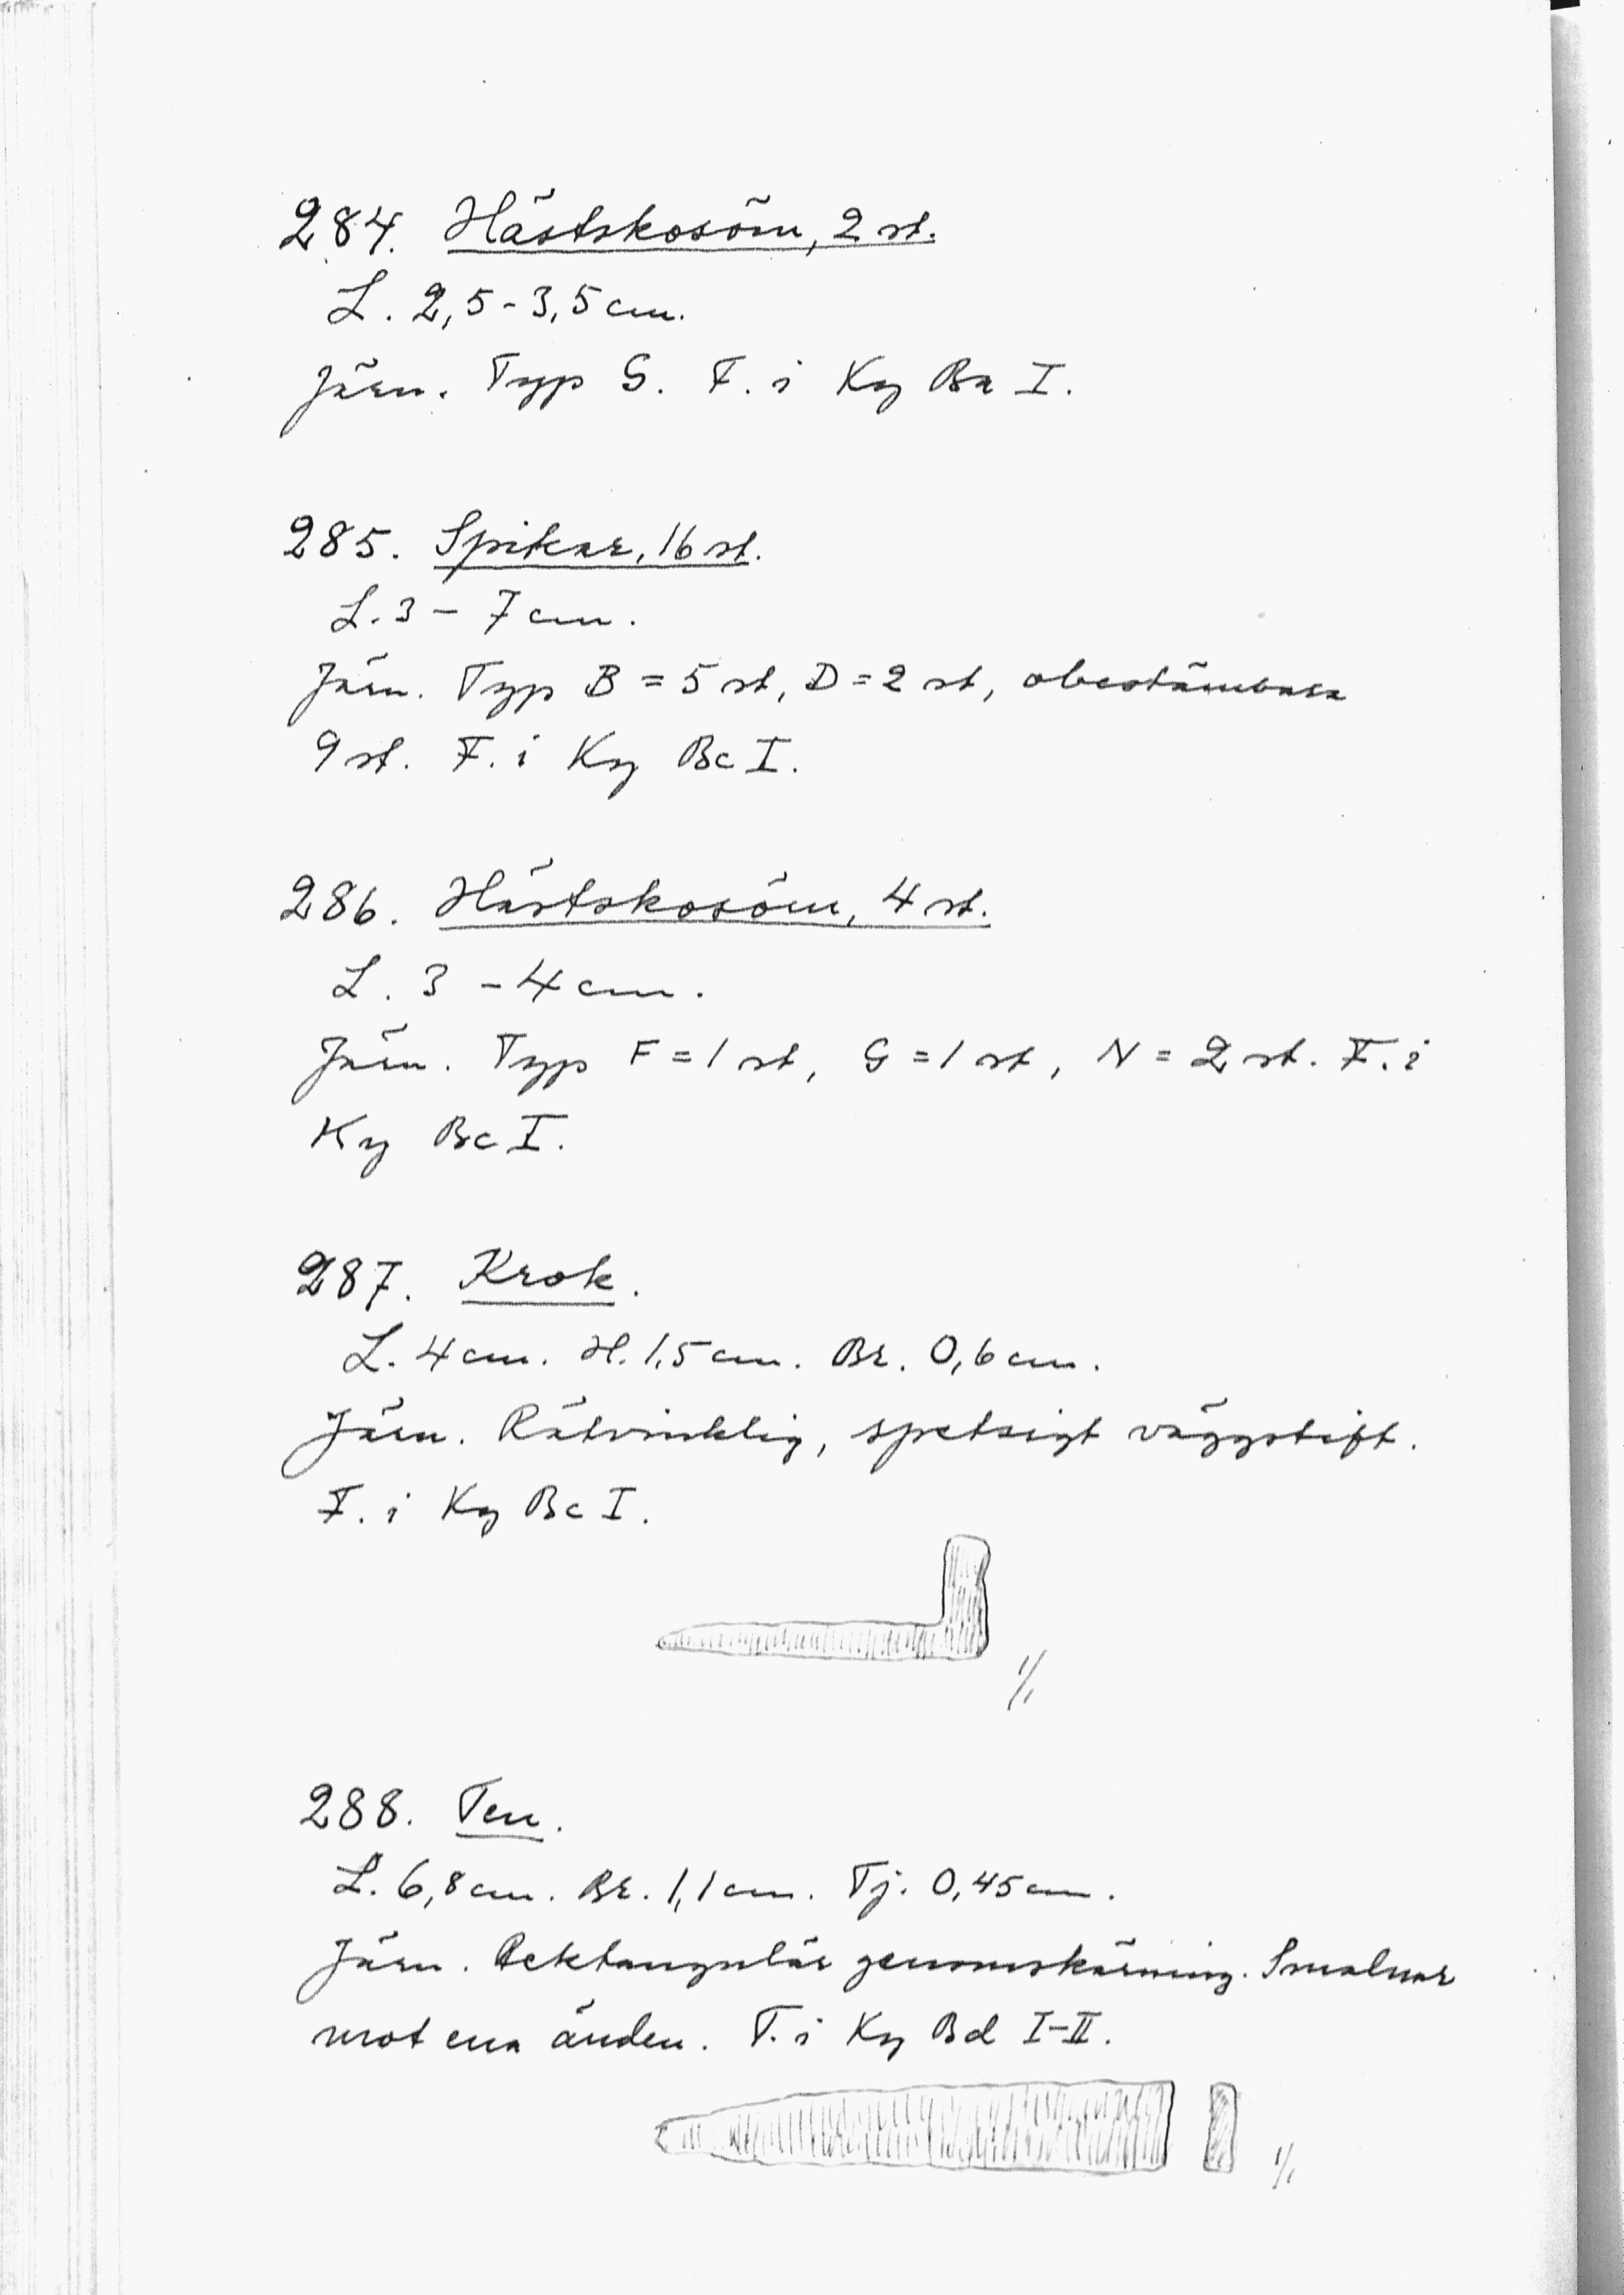 284. Hästskosöm, 2 st.
L. 2,5-3,5 cm.
Järn. Typ G. F. i Ky Ba I.
285. Spikar, 16 st.
L. 3 - 7 cm.
Järn. Typ B = 5 st, D = 2 st, obestämbara
9 st. F. i Ky Bc I.
286. Hästskosöm, 4 st.
L. 3 - 4 cm.
Järn. Typ F = 1 st, G = 1 st, N = 2 st. F. i
Ky Bc I.
287. Krok.
L. 4 cm. H. 1,5 cm. Br. 0,6 cm.
Järn. Rätvinklig, spetsigt väggstift.
F. i Ky Bc I.
1/1
288. Ten.
L. 6,8 cm. Br. 1,1 cm. Tj. 0,45 cm.
Järn. Rektangulär genomskärning. Smalnar
mot ena änden. F. i Ky Bd I-II.
1/1